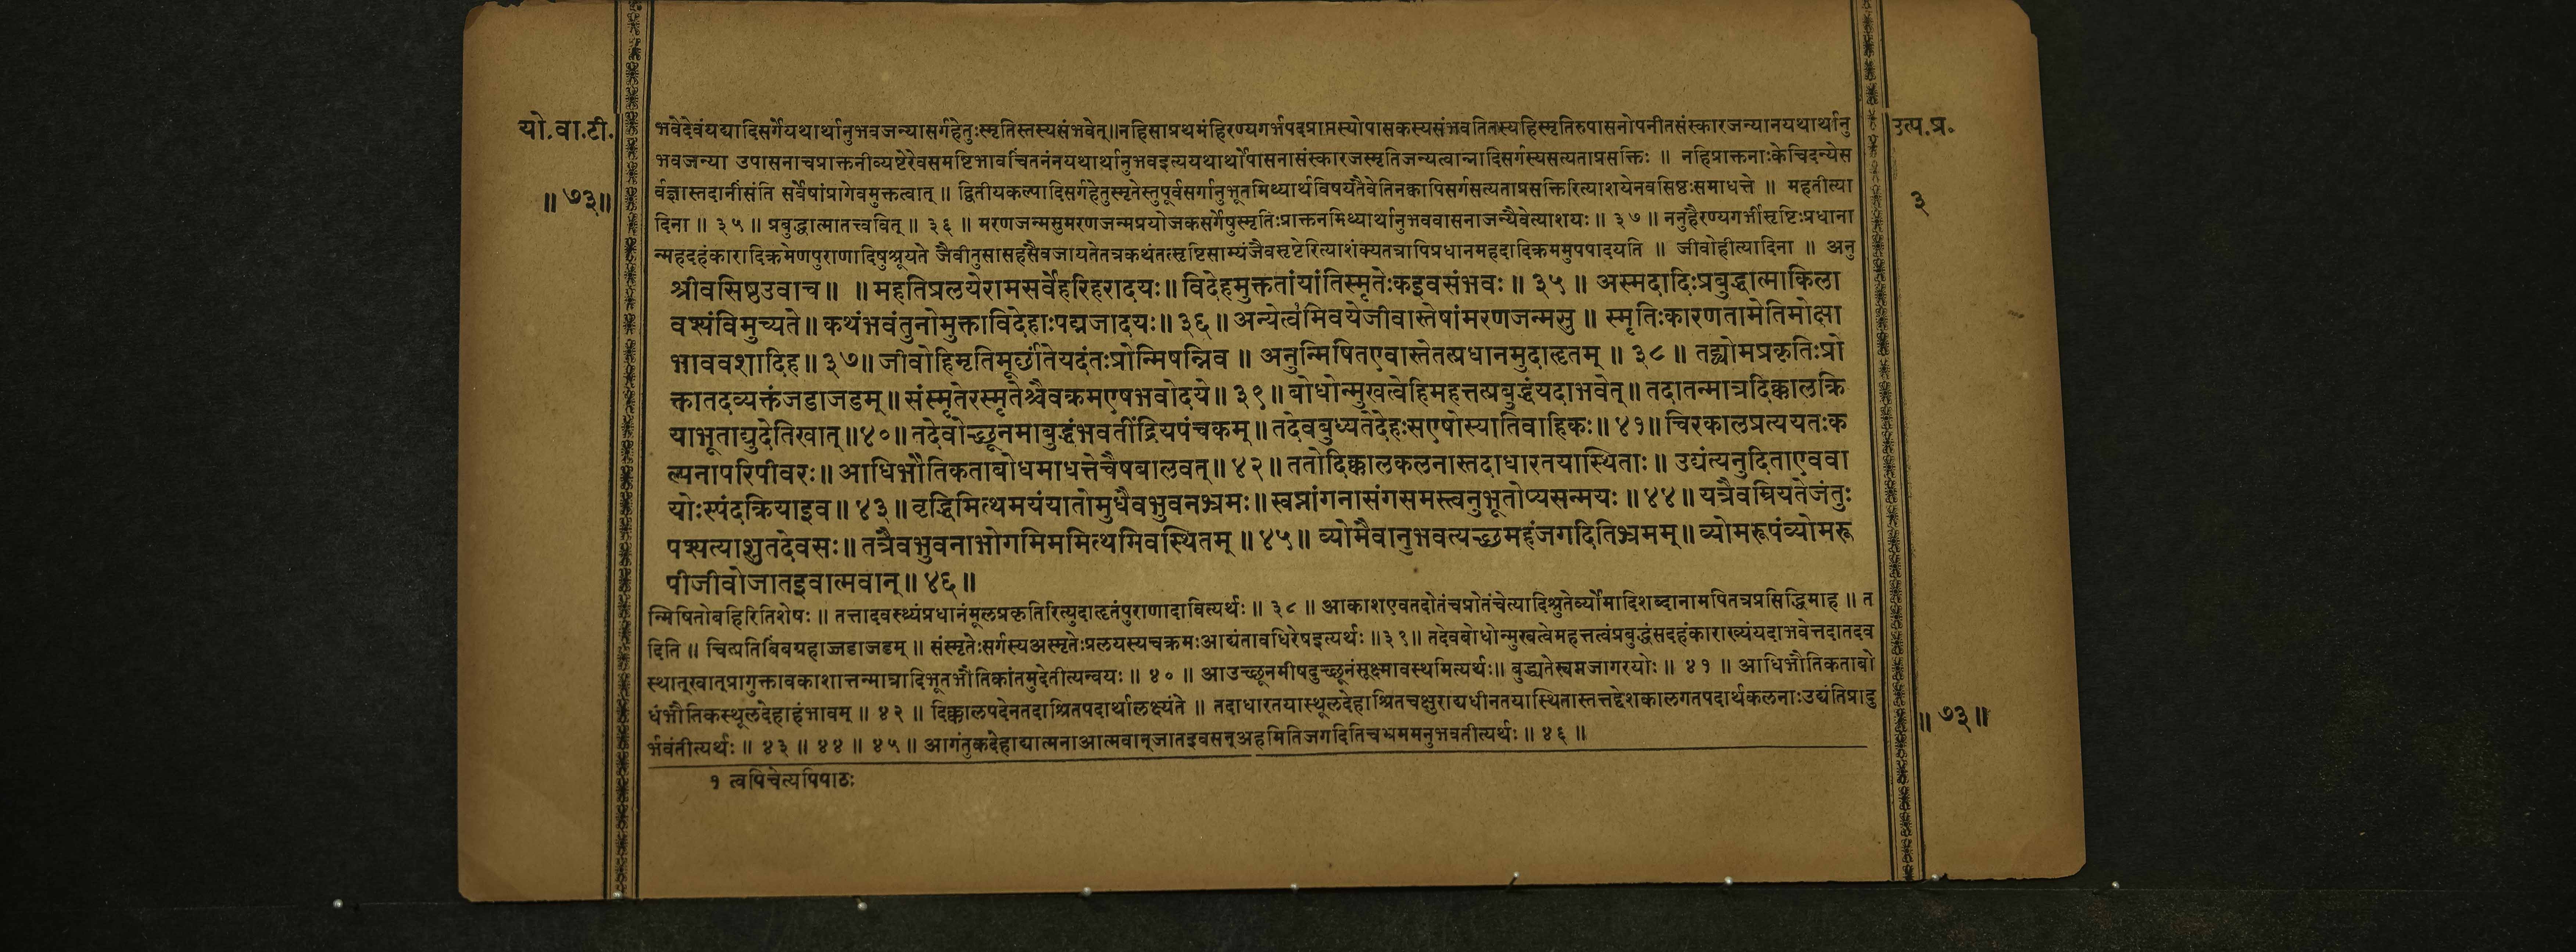 यो.वा.टी.
॥ ७३॥
उत्प.प्र.
३
भवेदेवंयद्यादिसर्गेयथार्थानुभवजन्यासर्गहेतुःस्मृतिस्तस्यसंभवेत्॥नहिसाप्रथमंहिरण्यगर्भपदप्राप्तस्योपासकस्यसंभवतितस्यहिस्मृतिरुपासनोपनीतसंस्कारजन्यानयथार्थानु
भवजन्या उपासनाचप्राक्तनीव्यष्टेरेवसमष्टिभावचिंतनंनयथार्थानुभवइत्ययथार्थोपासनासंस्कारजस्मृतिजन्यत्वान्नादिसर्गस्यसत्यताप्रसक्तिः ॥ नहिप्राक्तनाःकेचिदन्येस
र्वज्ञास्तदानींसंति सर्वेषांप्रागेवमुक्तत्वात् ॥ द्वितीयकल्पादिसर्गहेतुस्मृतेस्तुपूर्वसर्गानुभूतमिथ्यार्थविषयतैवेतिनक्वापिसर्गसत्यताप्रसक्तिरित्याशयेनवसिष्ठःसमाधत्ते ॥ महतीत्या
दिना ॥ ३५ ॥ प्रबुद्धात्मातत्त्ववित् ॥ ३६ ॥ मरणजन्मसुमरणजन्मप्रयोजकसर्गेषुस्मृतिःप्राक्तनमिथ्यार्थानुभववासनाजन्यैवेत्याशयः ॥ ३७ ॥ ननुहैरण्यगर्भीसृष्टिःप्रधाना
न्महदहंकारादिक्रमेणपुराणादिषुश्रूयते जैवीतुसासहसैवजायतेतत्रकथंतत्सृष्टिसाम्यंजैवसृष्टेरित्याशंक्यतत्रापिप्रधानमहदादिक्रममुपपादयति ॥ जीवोहीत्यादिना ॥ अनु
श्रीवसिष्ठउवाच॥ ॥ महतिप्रलयेरामसर्वेहरिहरादयः॥ विदेहमुक्ततांयांतिस्मृतेःकइवसंभवः ॥ ३५ ॥ अस्मदादिःप्रबुद्धात्माकिला
वश्यंविमुच्यते॥ कथंभवंतुनोमुक्ताविदेहाःपद्मजादयः॥ ३६॥ अन्येत्व१मिवयेजीवास्तेषांमरणजन्मसु ॥ स्मृतिःकारणतामेतिमोक्षा
भाववशादिह॥ ३७॥ जीवोहिमृतिमूर्छांतेयदंतःप्रोन्मिषन्निव ॥ अनुन्मिषितएवास्तेतत्प्रधानमुदाहृतम् ॥ ३८ ॥ तद्व्योमप्रकृतिःप्रो
क्तातदव्यक्तंजडाजडम्॥ संस्मृतेरस्मृतेश्चैवक्रमएषभवोदये॥ ३९॥ बोधोन्मुखत्वेहिमहत्तत्प्रबुद्धंयदाभवेत्॥ तदातन्मात्रदिक्कालक्रि
याभूताद्युदेतिखात्॥४०॥ तदेवोच्छूनमाबुद्धंभवतींद्रियपंचकम्॥ तदेवबुध्यतेदेहःसएषोस्यातिवाहिकः॥ ४१॥ चिरकालप्रत्ययतःक
ल्पनापरिपीवरः॥ आधिभौतिकताबोधमाधत्तेचैषबालवत्॥ ४२॥ ततोदिक्कालकलनास्तदाधारतयास्थिताः॥ उद्यंत्यनुदिताएववा
योःस्पंदक्रियाइव॥ ४३॥ वृद्धिमित्थमयंयातोमुधैवभुवनभ्रमः॥ स्वप्नांगनासंगसमस्त्वनुभूतोप्यसन्मयः ॥ ४४॥ यत्रैवम्रियतेजंतुः
पश्यत्याशुतदेवसः॥ तत्रैवभुवनाभोगमिममित्थमिवस्थितम् ॥ ४५॥ व्योमैवानुभवत्यच्छमहंजगदितिभ्रमम्॥ व्योमरूपंव्योमरू
पीजीवोजातइवात्मवान्॥ ४६॥
न्मिषितोबहिरितिशेषः ॥ तत्तादवस्थ्यंप्रधानंमूलप्रकृतिरित्युदाहृतंपुराणादावित्यर्थः ॥ ३८ ॥ आकाशएवतदोतंचप्रोतंचेत्यादिश्रुतेर्व्योमादिशब्दानामपितत्रप्रसिद्धिमाह ॥ त
दिति ॥ चित्प्रतिबिंबग्रहाज्जडाजडम् ॥ संस्मृतेःसर्गस्यअस्मृतेःप्रलयस्यचक्रमःआद्यंतावधिरेषइत्यर्थः ॥३९॥ तदेवबोधोन्मुखत्वेमहत्तत्वंप्रबुद्धंसदहंकाराख्यंयदाभवेत्तदातदव
स्थात्खात्प्रागुक्तावकाशात्तन्मात्रादिभूतभौतिकांतमुदेतीत्यन्वयः ॥ ४० ॥ आउच्छूनमीषदुच्छूनंसूक्ष्मावस्थमित्यर्थः॥ बुद्ध्यतेस्वप्नजागरयोः ॥ ४१ ॥ आधिभौतिकताबो
धंभौतिकस्थूलदेहाहंभावम् ॥ ४२ ॥ दिक्कालपदेनतदाश्रितपदार्थालक्ष्यंते ॥ तदाधारतयास्थूलदेहाश्रितचक्षुराद्यधीनतयास्थितास्तत्तद्देशकालगतपदार्थकलनाःउद्यंतिप्रादु
र्भवंतीत्यर्थः ॥ ४३ ॥ ४४ ॥ ४५ ॥ आगंतुकदेहाद्यात्मनाआत्मवान्जातइवसन्अहमितिजगदितिचभ्रममनुभवतीत्यर्थः ॥ ४६ ॥
॥ ७३॥
१ त्वपिचेत्यपिपाठः